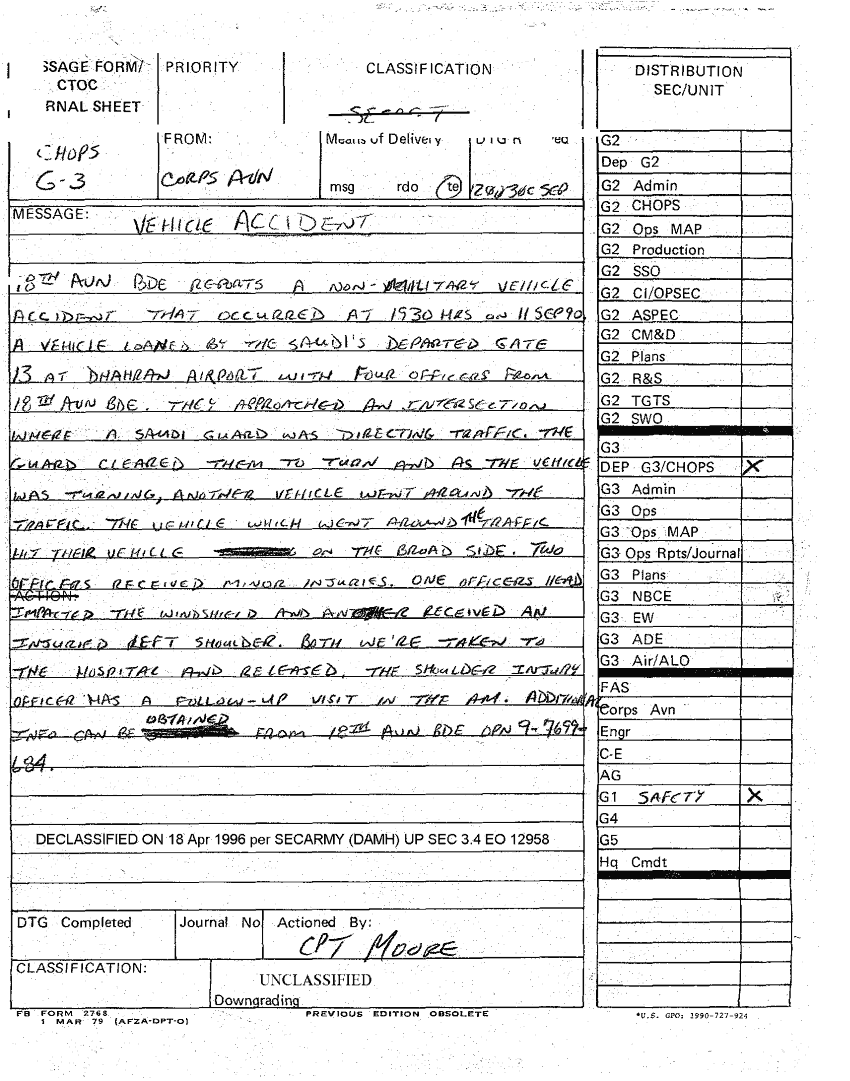 SSAGE FORM/
CTOC
RNAL SHEET
PRIORITY
CLASSIFICATION
SECRET
CHOPS
G-3
FROM:
CORPS AVN
Means of Delivery
msg rdo te
SEP
MESSAGE:
VEHICLE ACCIDENT
18TH AVN BDE REPORTS A NON-MILITARY VEHICLE
ACCIDENT THAT OCCURRED AT 1930 HRS ON 11 SEP 90.
A VEHICLE LOANED BY THE SAUDI'S DEPARTED GATE
13 AT DHAHRAN AIRPORT WITH FOUR OFFICERS FROM
18TH AVN BDE. THEY APPROACHED AN INTERSECTION
WHERE A SAUDI GUARD WAS DIRECTING TRAFFIC. THE
GUARD CLEARED THEM TO TURN AND AS THE VEHICLE
WAS TURNING, ANOTHER VEHICLE WENT AROUND THE
TRAFFIC. THE VEHICLE WHICH WENT AROUND THE TRAFFIC
HIT THEIR VEHICLE ON THE BROAD SIDE. TWO
OFFICERS RECEIVED MINOR INJURIES. ONE OFFICERS HEAD
ACTION:
IMPACTED THE WINDSHIELD AND ANOTHER RECEIVED AN
INJURIED LEFT SHOULDER. BOTH WE'RE TAKEN TO
THE HOSPITAL AND RELEASED. THE SHOULDER INJURY
OFFICER HAS A FOLLOW-UP VISIT IN THE AM. ADDITIONAL
INFO CAN BE OBTAINED FROM 18TH AVN BDE DPN 9-7699-
684.
DECLASSIFIED ON 18 Apr 1996 per SECARMY (DAMH) UP SEC 3.4 EO 12958
DTG Completed
Journal No
Actioned By:
CPT MOORE
CLASSIFICATION:
UNCLASSIFIED
Downgrading
FB FORM 2768
1 MAR 79 (AFZA-DPT-O)
PREVIOUS EDITION OBSOLETE
DISTRIBUTION
SEC/UNIT
G2
Dep G2
G2 Admin
G2 CHOPS
G2 Ops MAP
G2 Production
G2 SSO
G2 CI/OPSEC
G2 ASPEC
G2 CM&D
G2 Plans
G2 R&S
G2 TGTS
G2 SWO
G3
DEP G3/CHOPS X
G3 Admin
G3 Ops
G3 Ops MAP
G3 Ops Rpts/Journal
G3 Plans
G3 NBCE
G3 EW
G3 ADE
G3 Air/ALO
FAS
Corps Avn
Engr
C-E
AG
G1 SAFETY X
G4
G5
Hq Cmdt
*U.S. GPO: 1990-727-924